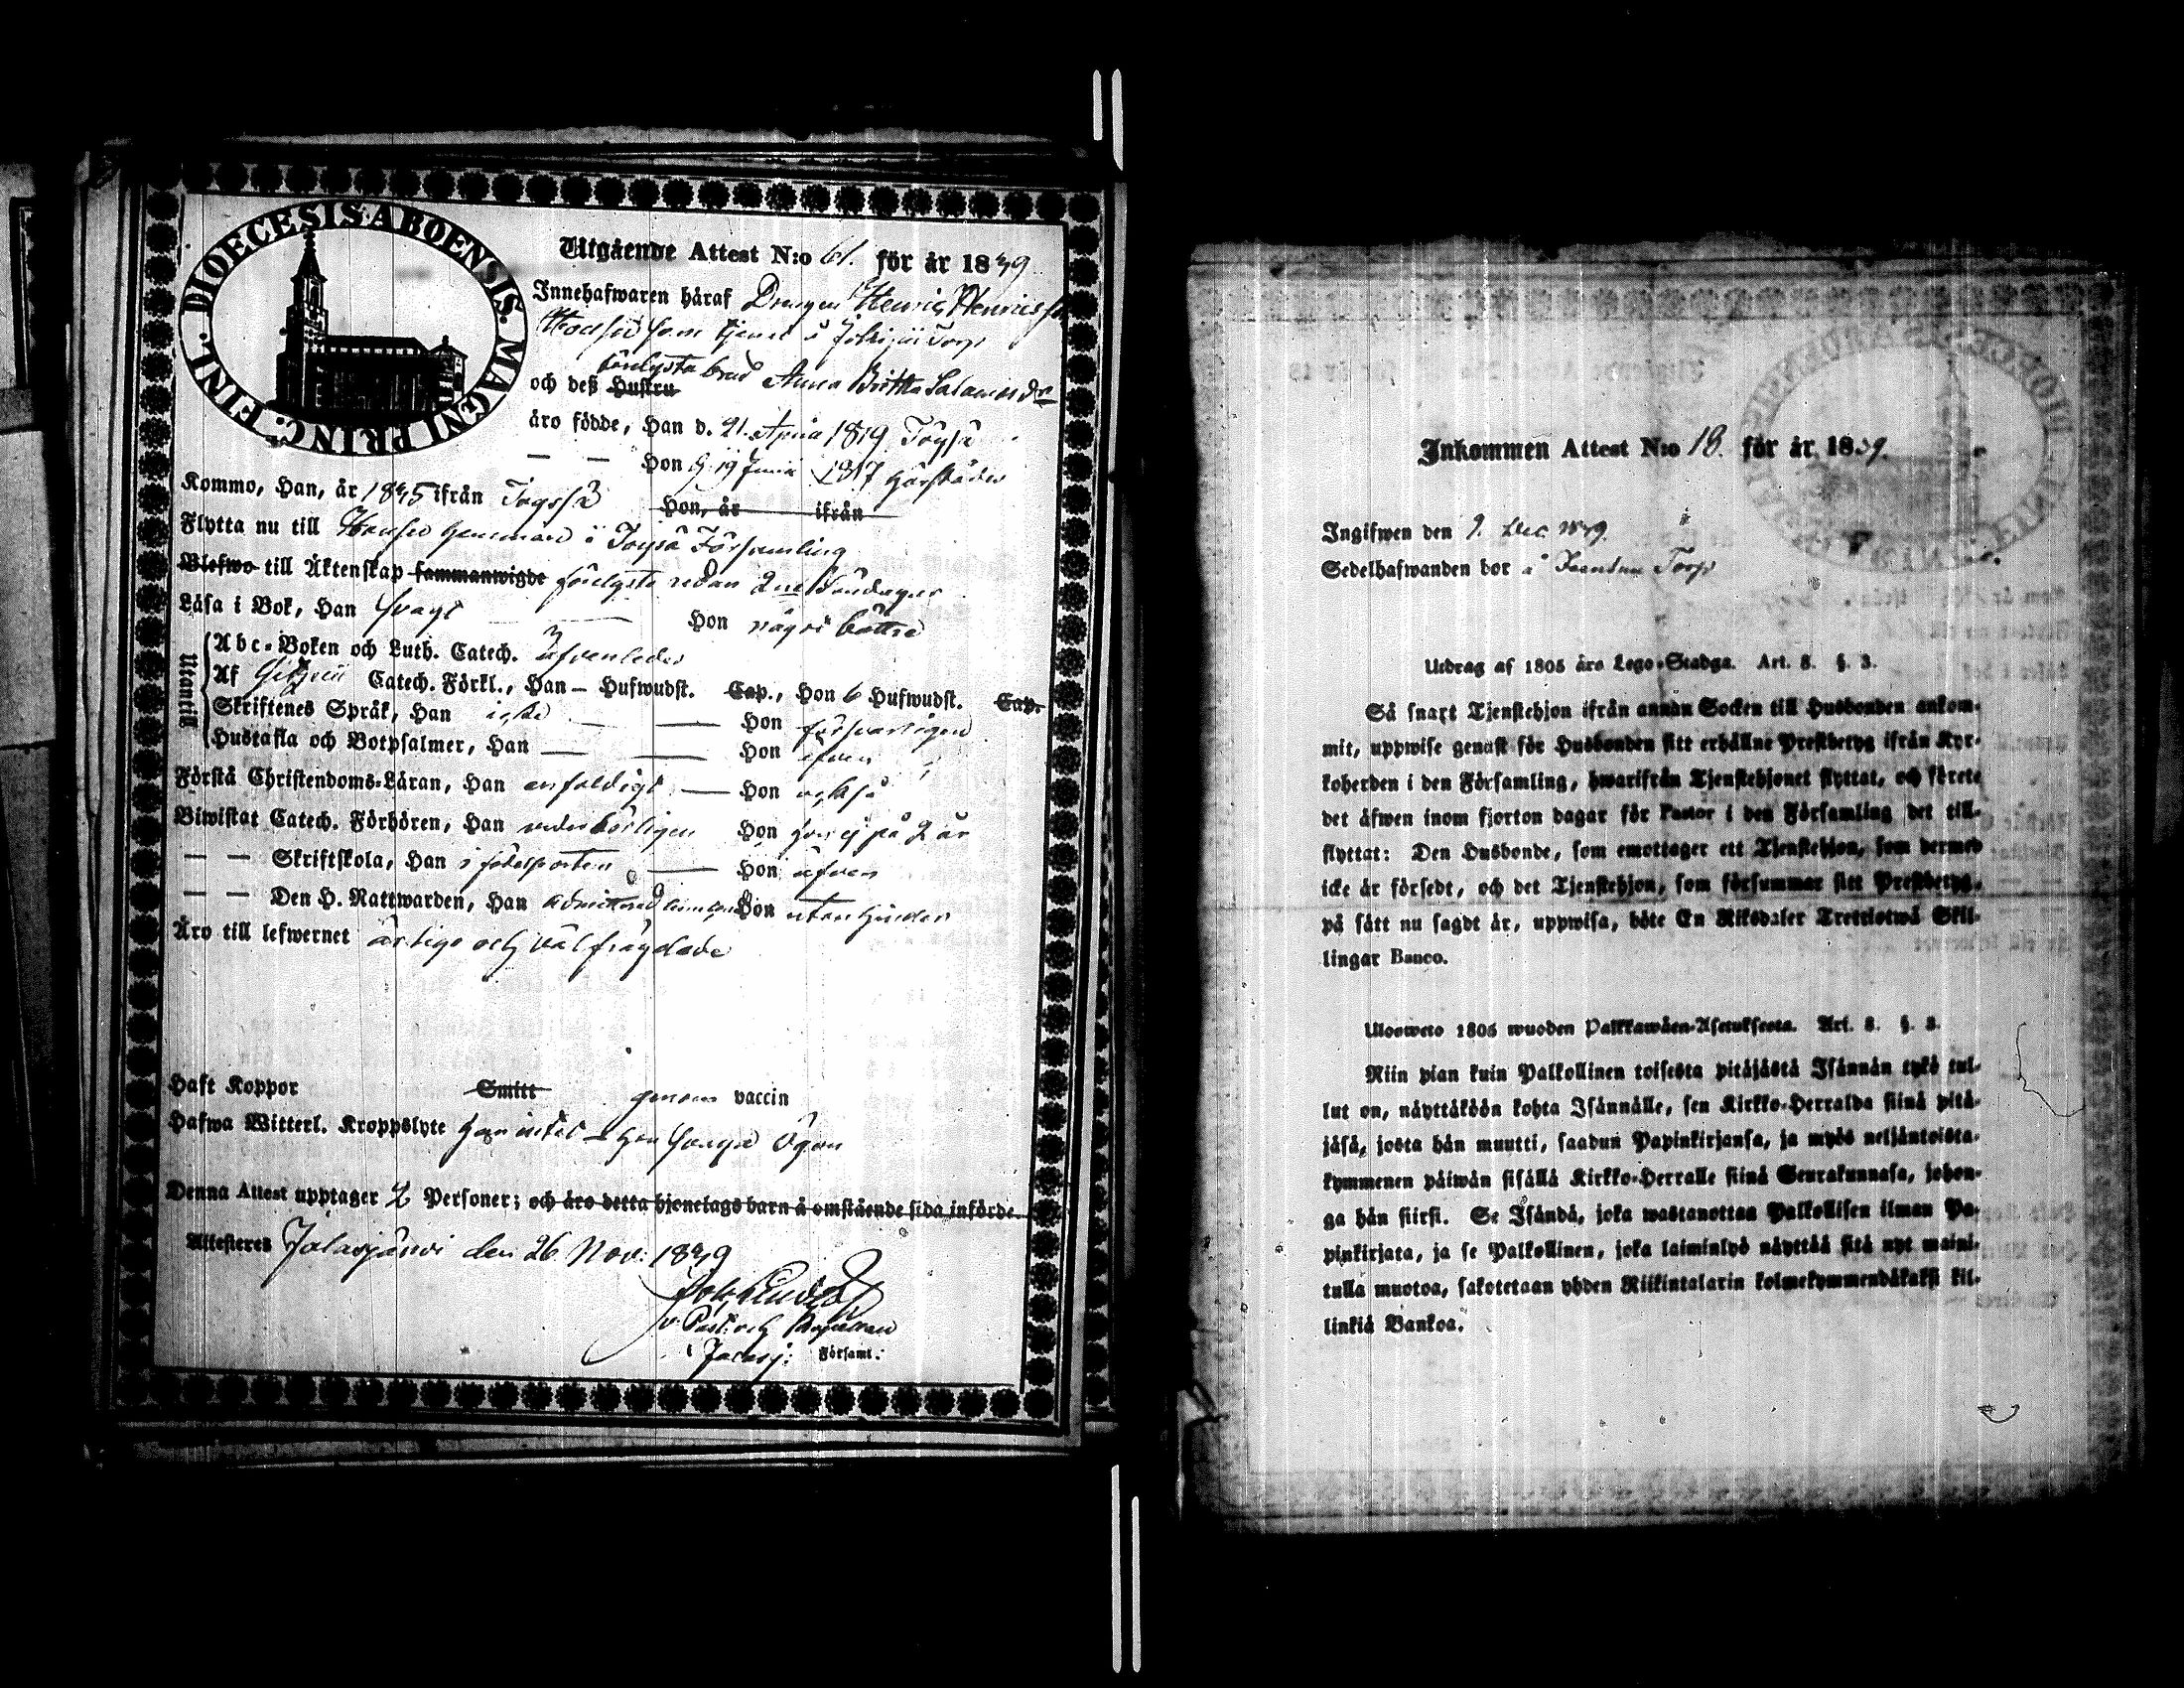 DIOECESIS ABOENSIS. MAGNI PRINC. FINL.
Utgående Attest N:o 61. för år 1849
Innehafwaren håraf Drengen Henric Henricss
som tjenat å Torp
förelysta brud
och deß Hustru Anna Britha Salomonsdr
äro födde, Han d. 21. April 1819 Töysä
— — Hon d. 19 Junii 1817 härstädes
Kommo, Han, år 1845 ifrån Töysä Hon, år ifrån
Flytta nu till hemman i Töysä Församling
Blefwo till Äktenskap sammanwigde förelyste redan 2ne Söndagar
Läsa i Bok, Han svagt Hon något bättre
Utantill
Abc-Boken och Luth. Catech. äfvenledes
Af Catech. Förkl., Han — Hufwudst. Cap., Hon 6 Hufwudst. Cap.
Skriftenes Språk, Han icke — — Hon försvarligen
Hustafla och Botpsalmer, Han — — Hon äfven
Förstå Christendoms-Läran, Han enfaldigt — Hon också
Biwistat Catech. Förhören, Han vederbörligen Hon har ej på 2 år
— — Skriftskola, Han — Hon äfven
— — Den H. Nattwarden, Han Hon utan hinder
Äro till lefwernet ärliga och välfrägdade
Haft Koppor Smitt genom vaccin
Hafwa Witterl. Kroppslyte han intet — hon svaga ögon
Denna Attest upptager 2 Personer; och äro detta hjonelags barn å omstående sida införde.
Attesteres Jalasjärvi den 26 Nov: 1849
v. Past: och
i Jalasj: Församl:
Inkommen Attest N:o 18. för år 1849.
Ingifwen den 9. Dec 1849.
Sedelhafwanden bor å Torp
Utdrag af 1805 års Lego-Stadga. Art. 8. §. 3.
Så snart Tjenstehjon ifrån annan Socken till Husbonden ankom-
mit, uppwise genast för Husbonden sitt erhållne Prestbetyg ifrån Kyr-
koherden i den Församling, hwarifrån Tjenstehjonet flyttat, och förete
det äfwen inom fjorton dagar för Pastor i den Församling det till-
flyttat: Den Husbonde, som emottager ett Tjenstehjon, som dermed
icke är försedt, och det Tjenstehjon, som försummar sitt Prestbetyg,
på sätt nu sagdt är, uppwisa, böte En Riksdaler Trettiotwå Skil-
lingar Banco.
Ulosweto 1805 wuoden Palkkawäen-Asetuksesta. Art. 8. §. 3.
Niin pian kuin Palkollinen toisesta pitäjästä Isännän tykö tul-
lut on, näyttäköön kohta Isännälle, sen Kirkko-Herralda siinä pitä-
jäsä, josta hän muutti, saadun Papinkirjansa, ja myös neljäntoista-
kymmenen päiwän sisällä Kirkko-Herralle siinä Seurakunnasa, johon-
ga hän siirsi. Se Isändä, joka wastanottaa Palkollisen ilman Pa-
pinkirjata, ja se Palkollinen, joka laiminlyö näyttää sitä nyt maini-
tulla muotoa, sakotetaan yhden Riikintalarin kolmekymmendäkaksi kil-
linkiä Bankoa.